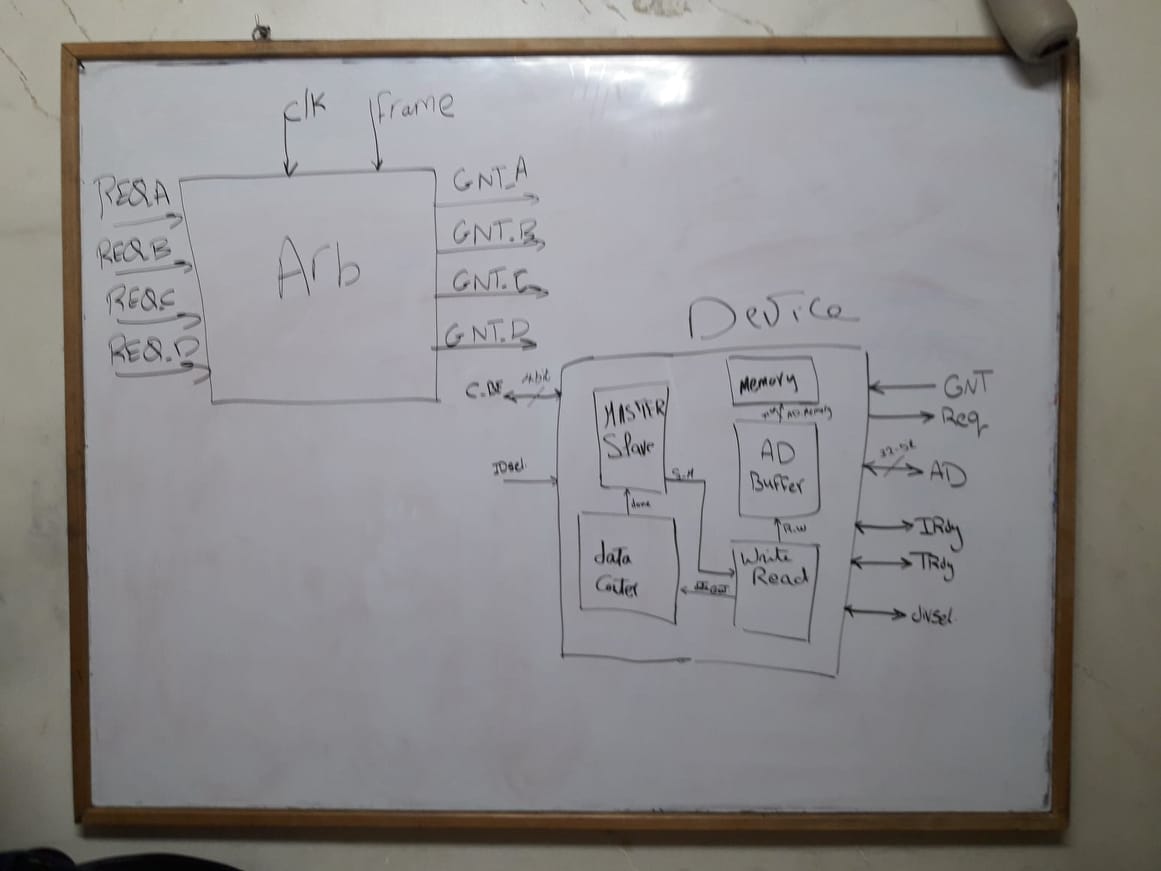 clk
Frame
REQ.A
REQ.B
REQ.C
REQ.D
Arb
GNT_A
GNT.B
GNT.C
GNT.D
Device
C.BE
4bit
IDsel
MASTER
Slave
S.M
done
data
Coter
Memory
AD
Buffer
R.W
Write
Read
GNT
Req
32-bit
AD
IRdy
TRdy